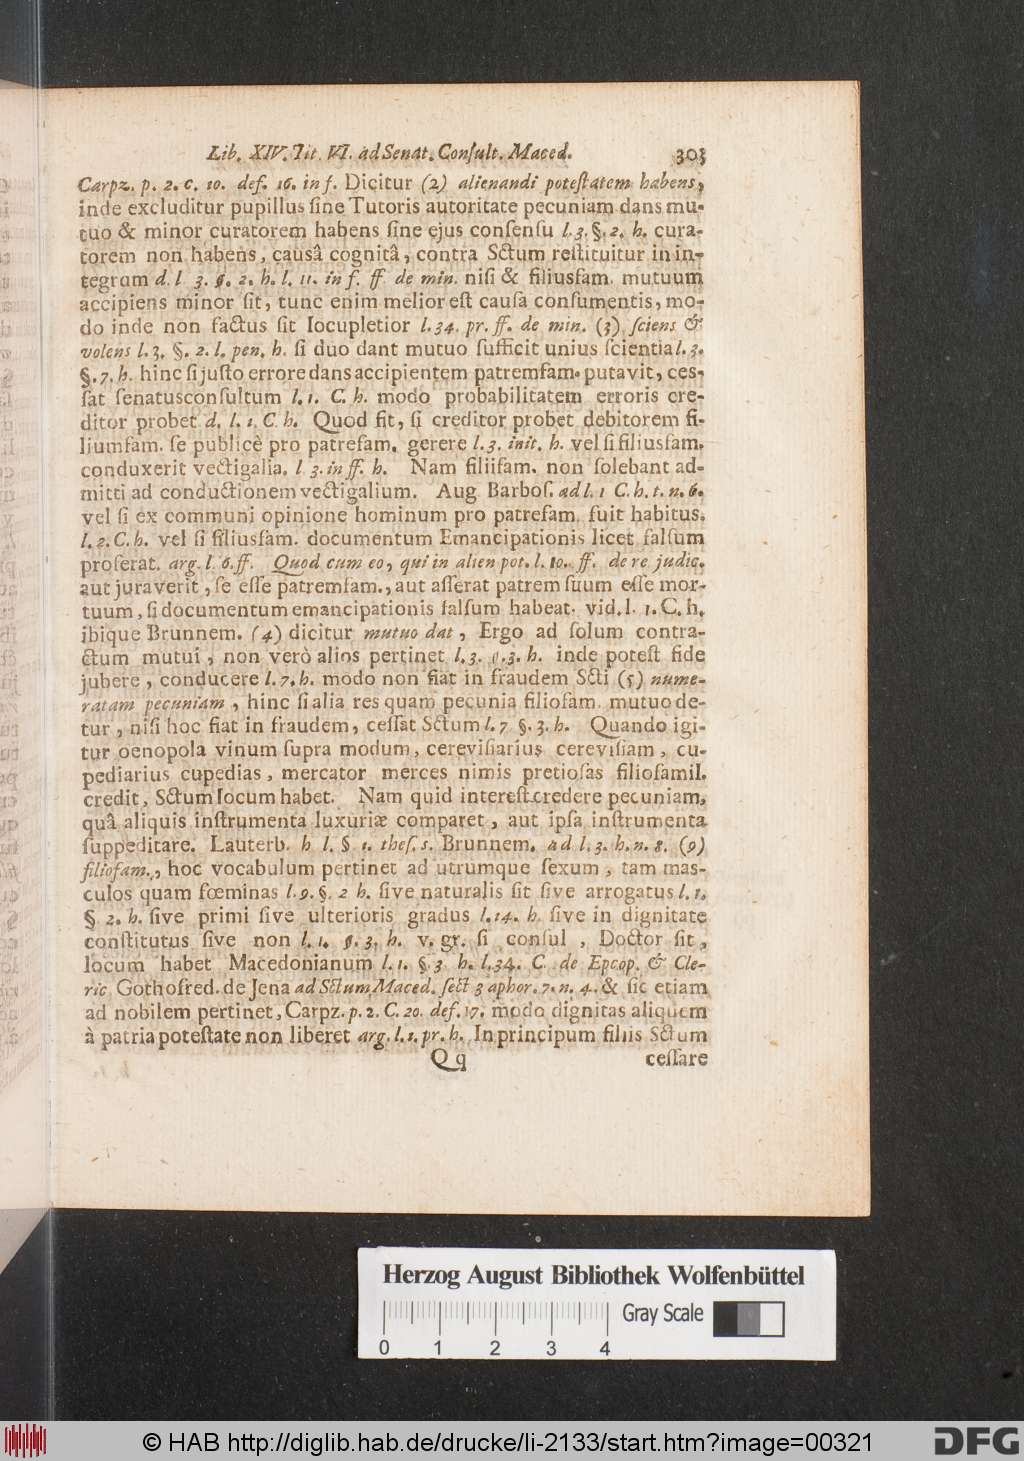 Lib. XIV. Tit. VI. ad Senat. Conſult. Maced. 303
Carpz. p. 2. c. 10. def. 16. in f. Dicitur (2) alienandi poteſtatem habens,
inde excluditur pupillus ſine Tutoris autoritate pecuniam dans mu-
tuo & minor curatorem habens ſine ejus conſenſu l. 3. §. 2. h. cura-
torem non habens, cauſâ cognitâ, contra Sctum reſtituitur in in-
tegrum d. l 3. §. 2. h. l. 11. in f. ff de min. niſi & filiusfam. mutuum
accipiens minor ſit, tunc enim melior eſt cauſa conſumentis, mo-
do inde non factus ſit locupletior l. 34. pr. ff. de min. (3) ſciens &
volens l. 3. §. 2. l. pen. h. ſi duo dant mutuo ſufficit unius ſcientia l. 3.
§. 7. h. hinc ſi juſto errore dans accipientem patremfam. putavit, ceſ-
ſat ſenatusconſultum l. 1. C. h. modo probabilitatem erroris cre-
ditor probet d. l. 1. C. h. Quod fit, ſi creditor probet debitorem fi-
liumfam. ſe publicè pro patrefam. gerere l. 3. init. h. vel ſi filiusfam.
conduxerit vectigalia. l 3. in ff. h. Nam filiifam. non ſolebant ad-
mitti ad conductionem vectigalium. Aug Barboſ. ad l. 1 C. h. t. n. 6.
vel ſi ex communi opinione hominum pro patrefam. fuit habitus.
l. 2. C. h. vel ſi filiusfam. documentum Emancipationis licet falſum
proferat. arg. l. 6. ff. Quod cum eo, qui in alien pot. l. 10. ff. de re judic.
aut juraverit, ſe eſſe patremfam., aut aſſerat patrem ſuum eſſe mor-
tuum, ſi documentum emancipationis falſum habeat. vid. l. 1. C. h.
ibique Brunnem. (4) dicitur mutuo dat, Ergo ad ſolum contra-
ctum mutui, non verò alios pertinet l. 3. §. 3. h. inde poteſt fide
jubere, conducere l. 7. h. modo non fiat in fraudem Scti (5) nume-
ratam pecuniam, hinc ſi alia res quam pecunia filiofam. mutuo de-
tur, niſi hoc fiat in fraudem, ceſſat Sctum l. 7 §. 3. h. Quando igi-
tur oenopola vinum ſupra modum, cereviſiarius cereviſiam, cu-
pediarius cupedias, mercator merces nimis pretioſas filiofamil.
credit, Sctum locum habet. Nam quid intereſt credere pecuniam,
quâ aliquis inſtrumenta luxuriæ comparet, aut ipſa inſtrumenta
ſuppeditare. Lauterb. h l. §. 1. theſ. s. Brunnem. ad l. 3. h. n. 8. (9)
filiofam., hoc vocabulum pertinet ad utrumque ſexum, tam maſ-
culos quam fœminas l. 9. §. 2 h. ſive naturalis ſit ſive arrogatus l. 1.
§ 2. h. ſive primi ſive ulterioris gradus l. 14. h. ſive in dignitate
conſtitutus ſive non l. 1. §. 3. h. v. gr. ſi conſul, Doctor ſit,
locum habet Macedonianum l. 1. §. 3 h. l. 34. C. de Epcop. & Cle-
ric Gothofred. de Jena ad Sctum Maced. ſect 3 aphor. 7. n. 4. & ſic etiam
ad nobilem pertinet, Carpz. p. 2. C. 20. def. 17. modo dignitas aliquem
à patria poteſtate non liberet arg. l. 1. pr. h. In principum filiis Sctum
Qq ceſſare
Herzog August Bibliothek Wolfenbüttel
Gray Scale
0 1 2 3 4
© HAB http://diglib.hab.de/drucke/li-2133/start.htm?image=00321
DFG